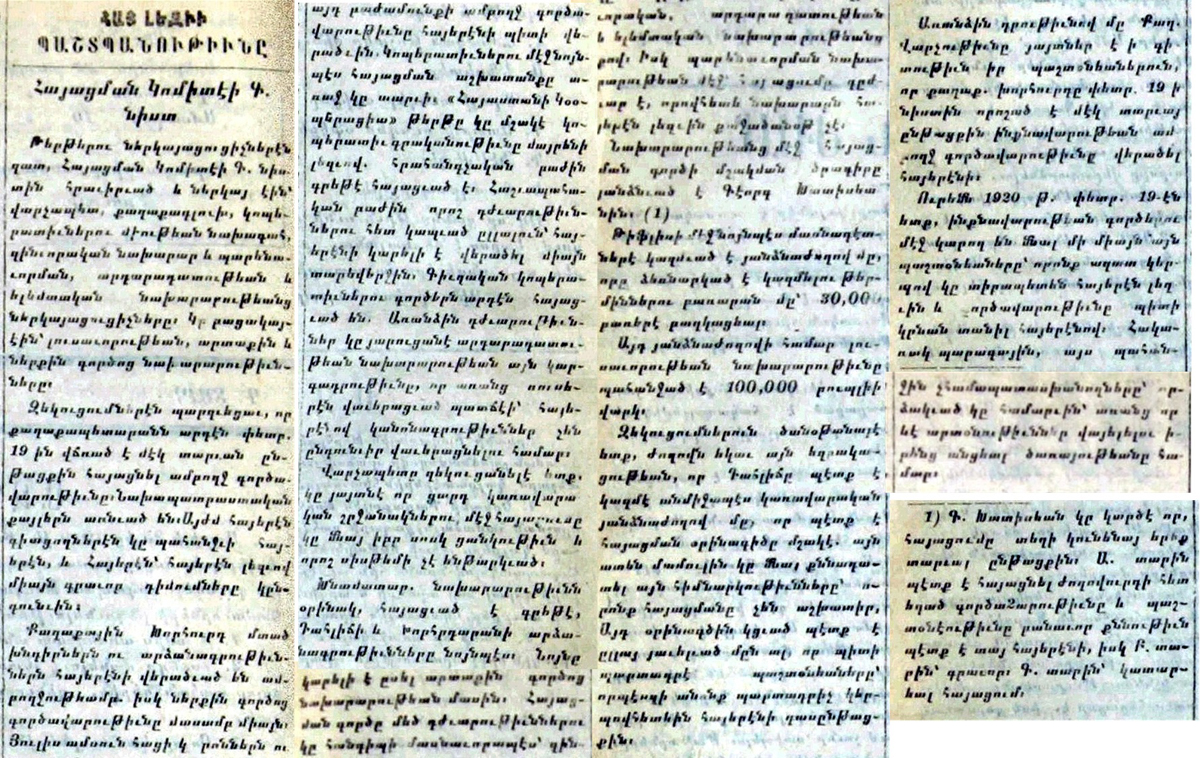 ՀԱՅ ԼԵԶՈՒԻ
ՊԱՇՏՊԱՆՈՒԹԻՒՆԸ
Հայացման Կոմիտէի Գ.
նիստ
Թերթերու ներկայացուցիչներէն
զատ, Հայացման Կոմիտէի Գ. նիս-
տին հրաւիրւած և ներկայ էին՝
վարչապետ, քաղաքագլուխ, կոպե-
րատիւներու միութեան նախագահ,
զինւորական նախարար և պարենա-
ւորման, արդարադատութեան և
ելեւմտական նախարարութեանց
ներկայացուցիչները։ Կը բացակայ-
էին՝ լուսաւորութեան, արտաքին և
ներքին գործոց նախարարութիւն-
ները։
Զեկուցումներէն պարզւեցաւ, որ
քաղաքապետարանն արդէն փետր.
19 ին վճռած է մէկ տարւան ըն-
թացքին հայացնել ամբողջ գործա-
վարութիւնը։ Նախապատրաստական
քայլերն առնւած են։ Այժմ հայերէն
գիտցողներէն կը պահանջւի հայ-
երէն, և Հայերէն՝ հայերէն լեզւով
միայն գրաւոր դիմումները կըն-
դունւին։
Քաղաքային Խորհուրդ մտած
խնդիրներն ու արձանագրութիւն-
ներն հայերէնի վերածւած են ամ-
բողջութեամբ. իսկ ներքին գործոց
գործավարութիւնը մասամբ միայն
Յուլիս ամսուն հացի և րոններն ու
այդ բաժամունքի ամբողջ գործա-
վարութիւնը հայերէնի պիտի վե-
րածւին. Կոպերատիւներու մէջ նոյն-
պէս հայացման աշխատանքը ա-
ռաջ կը տարւի։ «Հայաստանի Կօօ-
պերացիա» թերթը կը մշակէ կո-
պերատիւ գրականութիւնը մայրենի
լեզւով. հրահանգչական բաժին
գրեթէ հայացւած է։ Հաշւապահա-
կան բաժին որոշ դժւարութիւն-
ներու հետ կապւած ըլլալուն՝ հայ-
երէնի կարելի է վերածել միայն
տարեվերջին. Գիւղական կոպերա-
տիւներու գործերն արդէն հայաց-
ւած են. Առանձին դժւարութիւն-
ներ կը յարուցանէ արդարադատու-
թեան նախարարութեան այն կար-
գադրութիւնը, որ առանց ռուսե-
րէն վաւերացւած պատճէի՝ հայե-
րէնով կանոնագրութիւններ չեն
ընդունւիր վաւերացնելու համար։
Վարչապետը զեկուցանելէ ետք.
կը յայտնէ որ ցարդ կառավարա
կան շրջանակներու մէջ հայացումը
կը մնայ իբր սոսկ ցանկութիւն և
որոշ սիստեմի չէ ենթարկւած։
Խնամատար. նախարարութիւնն
օրինակ, հայացւած է գրեթէ,
Դահլիճի և Խորհրդարանի արձա-
նագրութիւնները նոյնպէս։ Նոյնը
կարելի է ըսել արտաքին գործոց
նախարարութեան մասին։ Հայաց-
ման գործը մեծ դժւարութիւններու
կը հանդիպի մասնաւորապէս՝ զին-
ւորական, արդարադատութեան
և ելեմտական նախարարութեանց
քով։ Իսկ պարենաւորման նախա-
րարութեան մէջ հայացումը դըժ-
ւար է, որովհետև նախարարն հա-
յերէն լեզւին քաջածանօթ չէ։
Նախարարութեանց մէջ հայաց-
ման գործի մշակման ծրագիրը
անձնւած է Գէորգ Խատիսեա
նին։ (1)
Թիֆլիսի մէջ նոյնպէս մասնագէտ-
ներէ կազմւած է յանձնաժողով մը,
որը ձեռնարկած է կազմելու թեր-
միններու բառարան մը՝ 30,000
բառերէ բաղկացեալ։
Այդ յանձնաժողովի համար լու-
սաւորութեան նախարարութիւնը
պահանջած է 100,000 րուպլիի
վարկ։
Զեկուցումներուն ծանօթանալէ
ետք, ժողովն եկաւ այն եզրակա-
ցութեան, որ Դահլիճը պէտք է
կազմէ անմիջապէս կառավարական
յանձնաժողով մը, որ պէտք է
հայացման օրինագիծը մշակէ. այն
ատեն մամուլին կը մնայ քննադա-
տել այն հիմնարկութիւնները՝ ո-
րոնք հայացմանը չեն աշխատիր,
Այդ օրինագծին կցւած պէտք է
ըլլայ յաւելւած մըն ալ, որ պիտի
պարտադրէ պաշտօնեաները՝
որպէսզի անոնք պարտադրիչ կեր-
պով հետևին հայերէնի դասընթաց-
քին։
Առանձին գրութիւնով մը Քաղ.
Վարչութիւնը յայտներ է ի գի-
տութիւն իր պաշտօնեաներուն,
որ քաղաք. խորհուրդը փետր. 19 ի
նիստին որոշած է մէկ տարւայ
ընթացքին ինքնավարութեան ամ-
բողջ գործավարութիւնը վերածել
հայերէնի։
Ուրեմն 1920 թ. փետր. 19-էն
ետք, ինքնավարութեան գործերու
մէջ կարող են մնալ միմիայն այն
պաշտօնեաները՝ որոնք ազատ կեր-
պով կը տիրապետեն հայերէն լեզ
ւին և գործավարութիւնը պիտի
կրնան տանիլ հայերէնով. Հակա-
ռակ պարագային, այս պահան-
ջին չհամապատասխանողները՝ ար-
ձակւած կը համարւին՝ առանց որ
եէ արտօնութիւններ վայելելու ի-
րենց անցեալ ծառայութեանը հա-
մար։
1) Գ. Խատիսեան կը կարծէ որ,
հայացումը տեղի կունենայ երեք
տարւայ ընթացքին։ Ա. տարին
պէտք է հայացնել ժողովուրդի հետ
եղած գործավարութիւնը և պաշ-
տօնէութիւնը բանաւոր քննութիւն
պէտք է տայ հայերէնի, իսկ Բ. տա-
րին՝ գրաւոր։ Գ. տարին՝ կատար-
եալ հայացում.